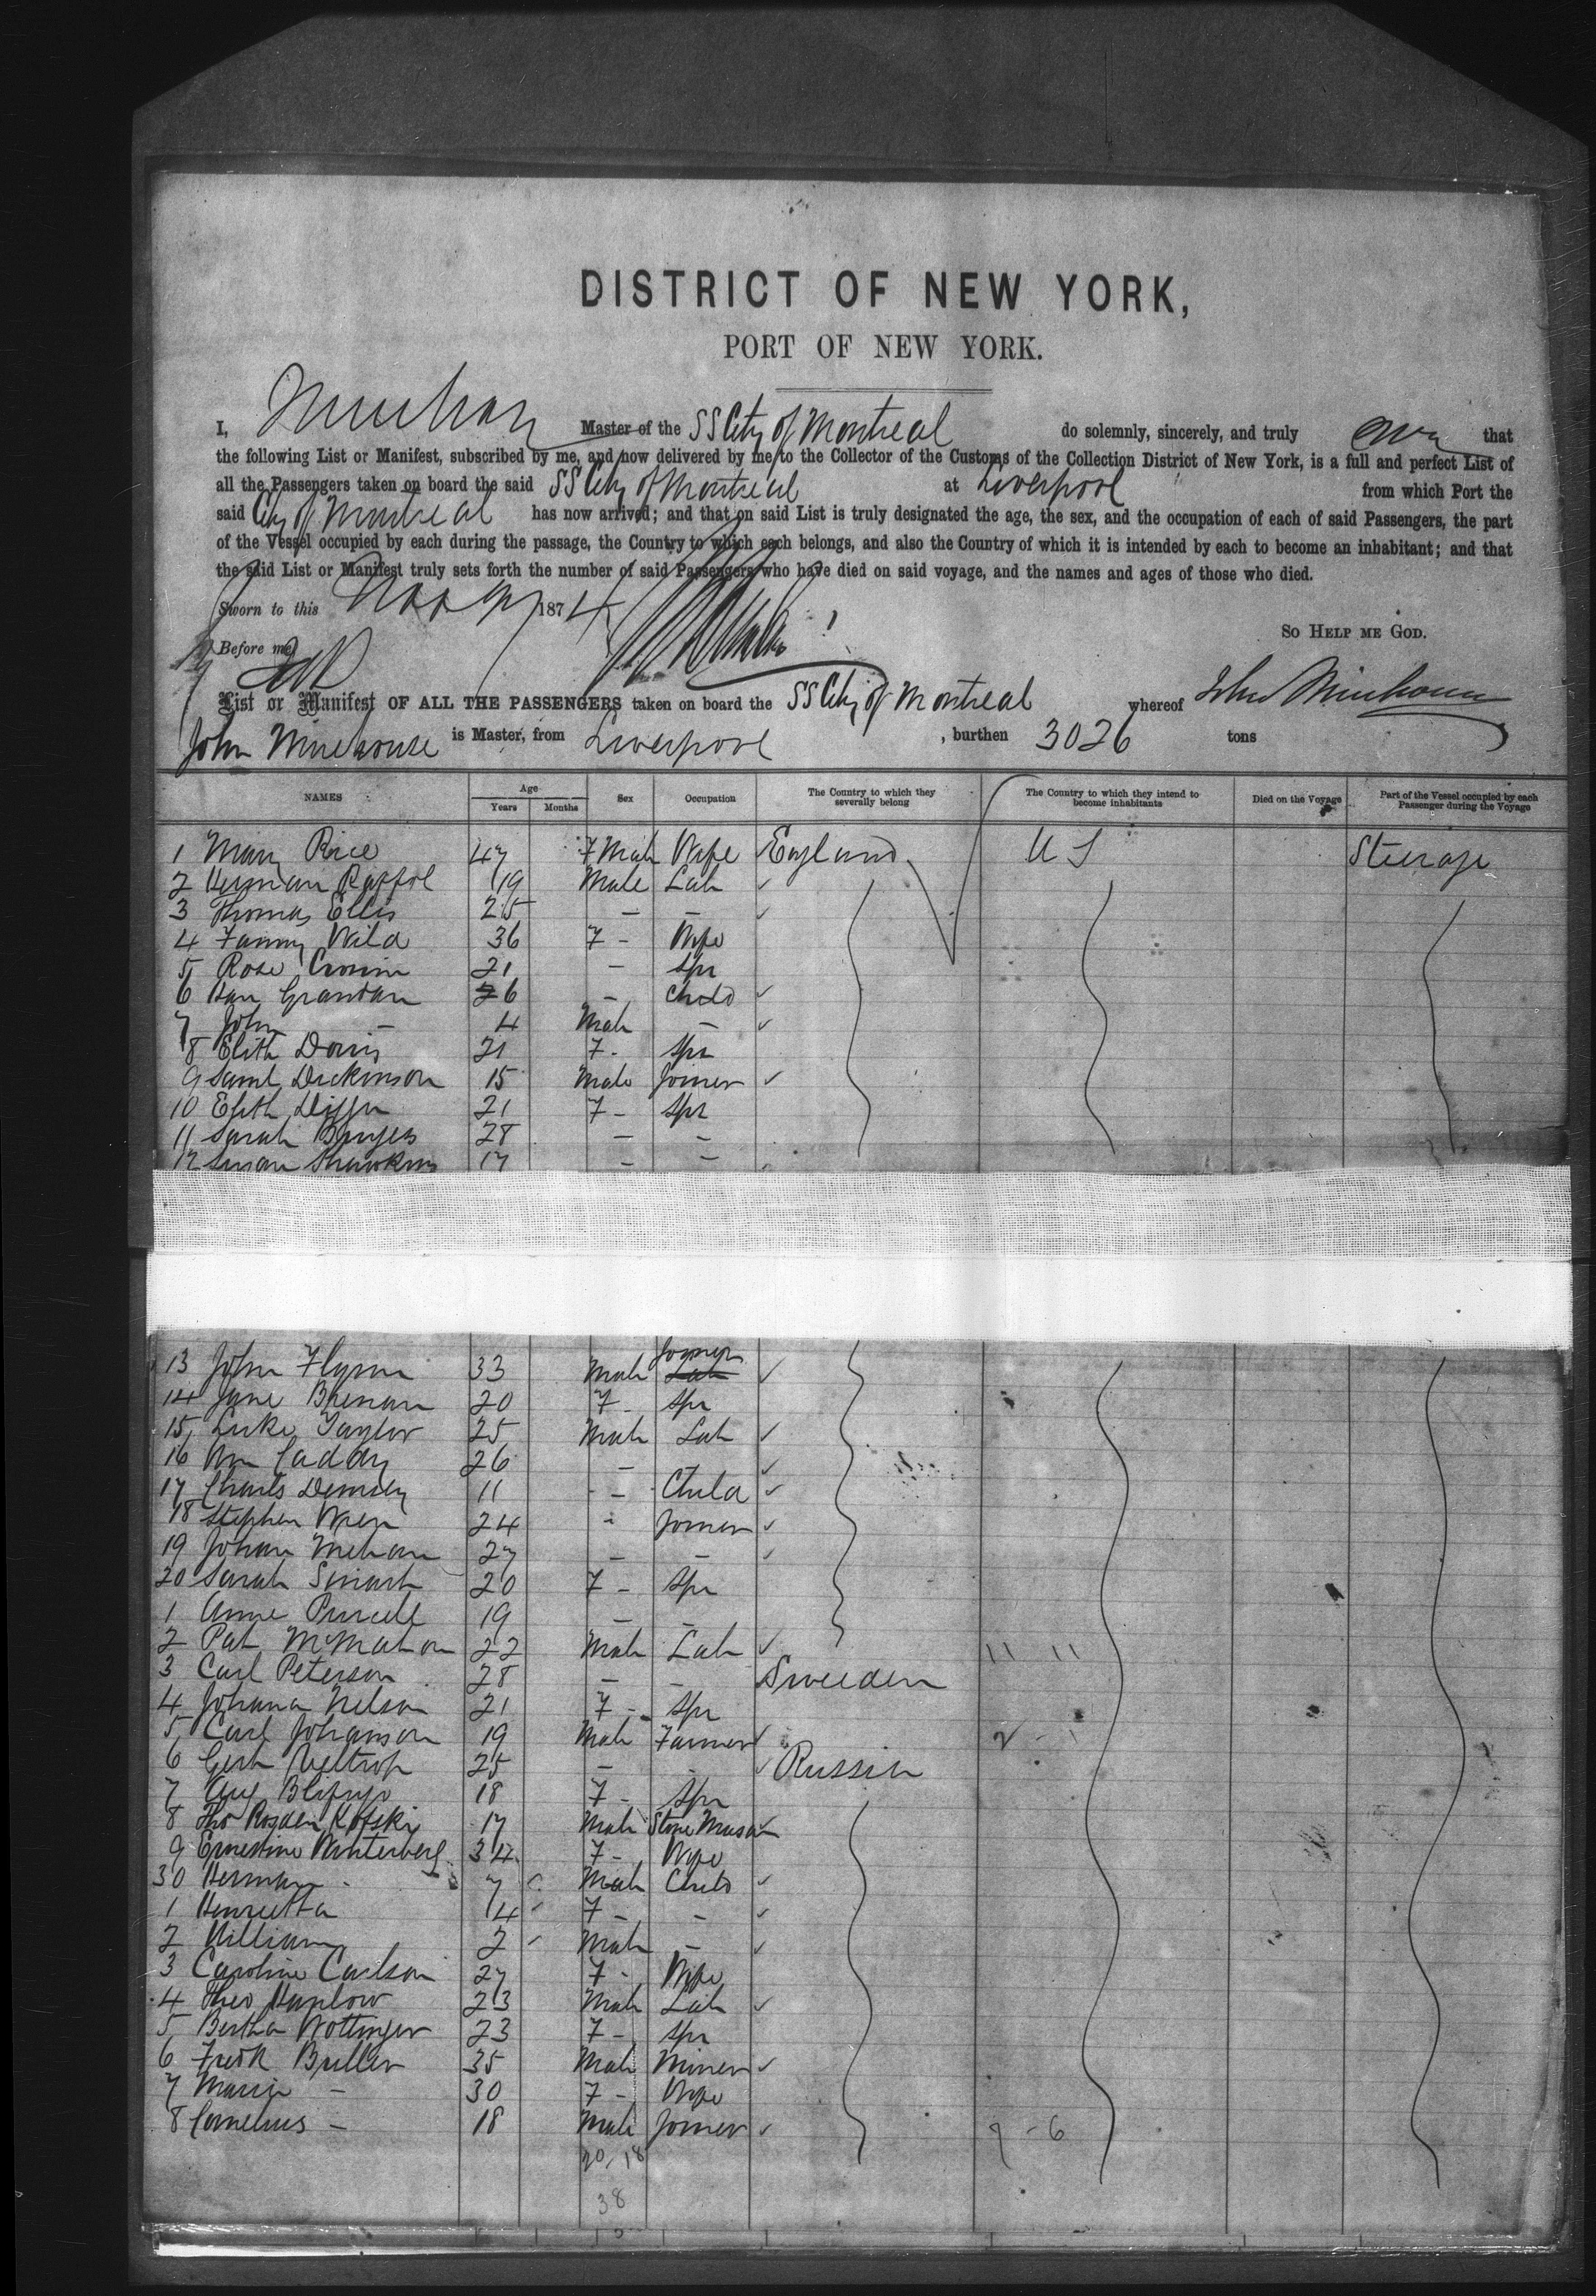 DISTRICT OF NEW YORK,
PORT OF NEW YORK.
I, Master of the SS City of Montreal do solemnly, sincerely, and truly that
the following List or Manifest, subscribed by me, and now delivered by me to the Collector of the Customs of the Collection District of New York, is a full and perfect List of
all the Passengers taken on board the said SS City of Montreal at Liverpool from which Port the
said City of Montreal has now arrived; and that on said List is truly designated the age, the sex, and the occupation of each of said Passengers, the part
of the Vessel occupied by each during the passage, the Country to which each belongs, and also the Country of which it is intended by each to become an inhabitant; and that
the said List or Manifest truly sets forth the number of said Passengers who have died on said voyage, and the names and ages of those who died.
Sworn to this 1874
SO HELP ME GOD.
Before me
List or Manifest OF ALL THE PASSENGERS taken on board the SS City of Montreal whereof John
John Mirehouse is Master, from Liverpool, burthen 3026 tons
NAMES Age Years Months Sex Occupation The Country to which they severally belong The Country to which they intend to become inhabitants Died on the Voyage Part of the Vessel occupied by each Passenger during the Voyage
1 Mary Rice 47 F Male Wife England U S Steerage
2 Herman 19 Male Lab
3 Thomas Ellis 25 - -
4 Fanny Wild 36 F - Wife
5 Rose Cronin 21 - Spr
6 Han 6 - Child
7 John - 4 Male -
8 Elith Davis 21 F - Spr
9 Saml Dickinson 15 Male Joiner
10 Elith 21 F - Spr
11 Sarah Burgess 28 - -
12 Susan 17 - -
13 John Flynn 33 Male Joiner Lab
14 Jane Brenan 20 F - Spr
15 Luke Taylor 25 Male Lab
16 Wm Caddy 26 -
17 Charles Dempsey 11 - Child
18 Stephen Wren 24 " Joiner
19 Johan Mehan 27 - -
20 Sarah Smart 20 F - Spr
1 Anne Purcell 19 - -
2 Pat McMahon 22 Male Lab 11 11
3 Carl Peterson 28 - - Sweeden
4 Johana Nelson 21 F - Spr
5 Carl Johanson 19 Male Farmer 2 - 1
6 25 - - Russia
7 Aug 18 F - Spr
8 Tho 17 Male Stone Mason
9 Ernestine Winterberg 34 F - Wife
30 Herman - 7 Male Child
1 Henrietta 4 F - -
2 William 2 Male -
3 Caroline Carlson 27 F - Wife
4 Theo 23 Male Lab
5 Bertha Wottinger 23 F - Spr
6 Fredk Buller 35 Male Miner
7 Maria - 30 F - Wife
8 Cornelius - 18 Male Joiner 9 - 6
20, 18
38